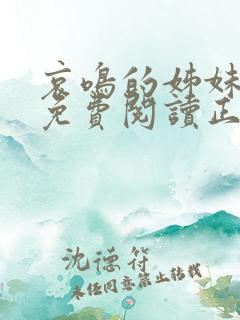 哀鳴的姊妹
免費閱讀正
沈德符
未經同意禁止轉載